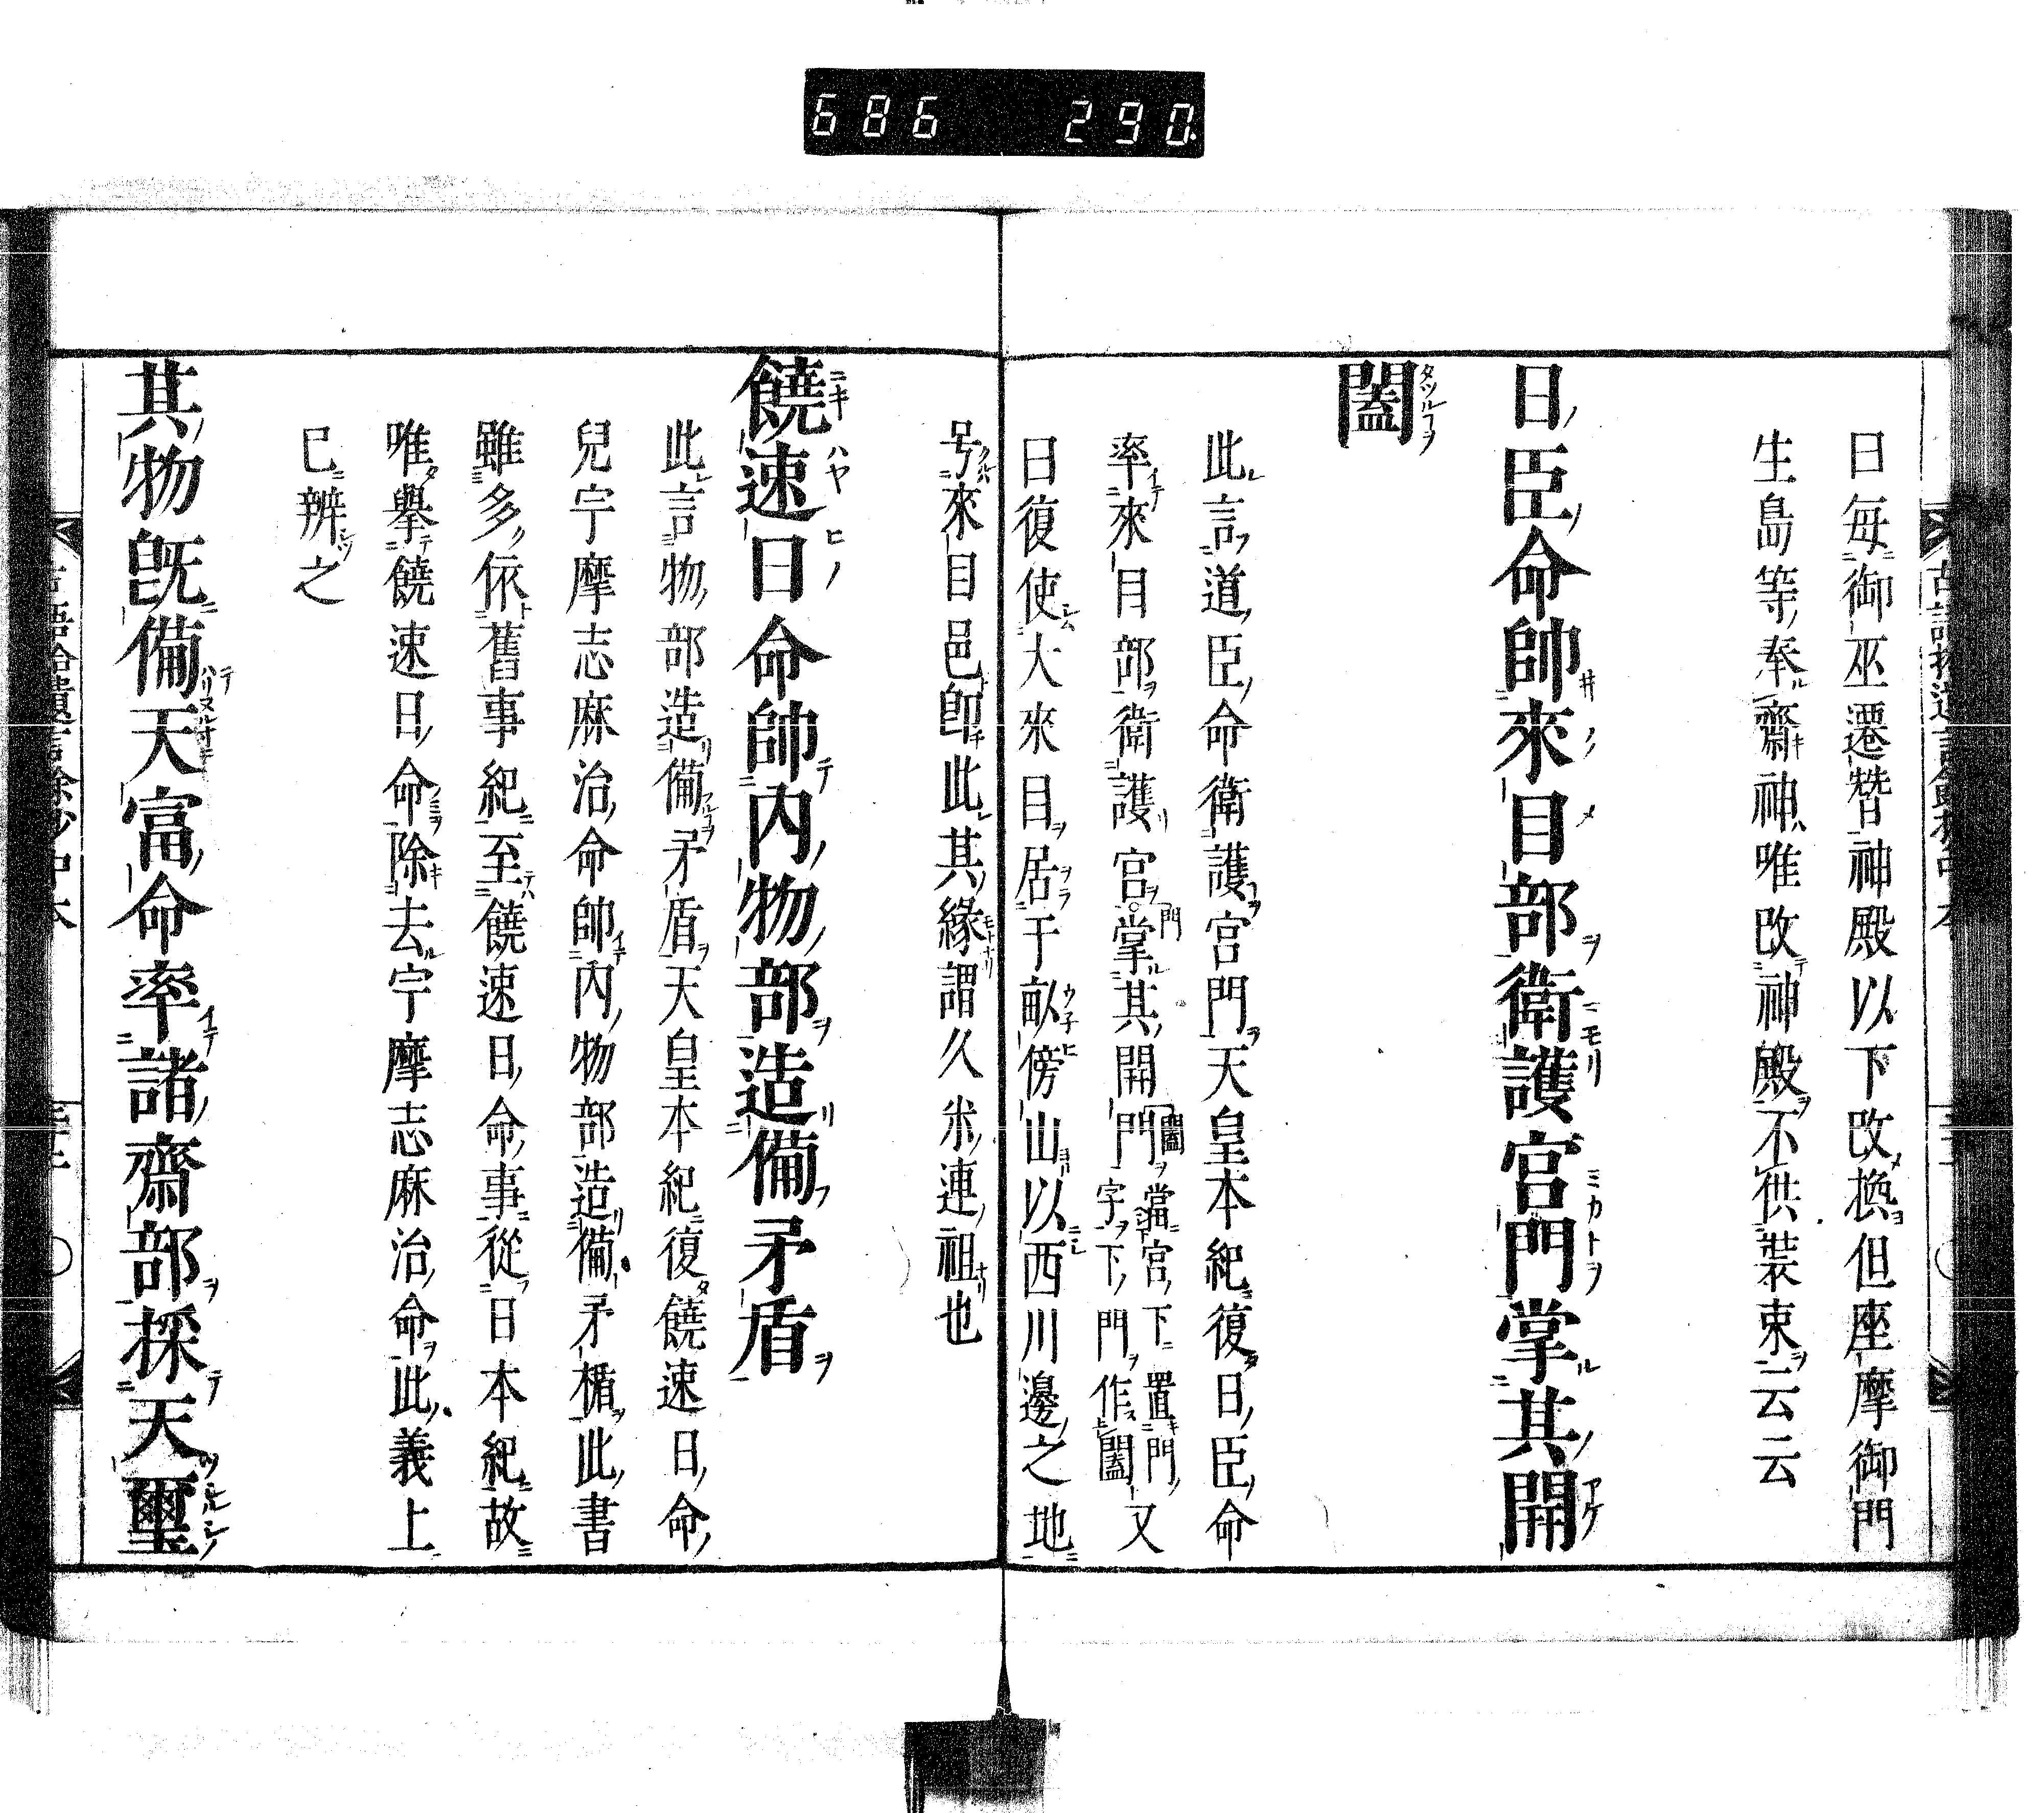 686 290
曰毎御巫遷替神殿以下改換但座摩御門
生島等奉齋神唯改神殿不供裝束云云
日臣命帥來目部衛護宮門掌其開
闔
此言道臣命衛護宮門天皇本紀復日臣命
率來目部衛護宮門掌其開門闔當宮下置門字下門作闔又
曰復使大來目居于畝傍山以西川邊之地
号來目邑卽此其緣謂久米連祖也
饒速日命帥內物部造備矛盾
此言物部造備矛盾天皇本紀復饒速日命
兒宇摩志麻治命帥內物部造備矛楯此書
雖多依舊事紀至饒速日命事從日本紀故
唯擧饒速日命除去宇摩志麻治命此義上
已辨之
其物旣備天富命率諸齋部採天璽